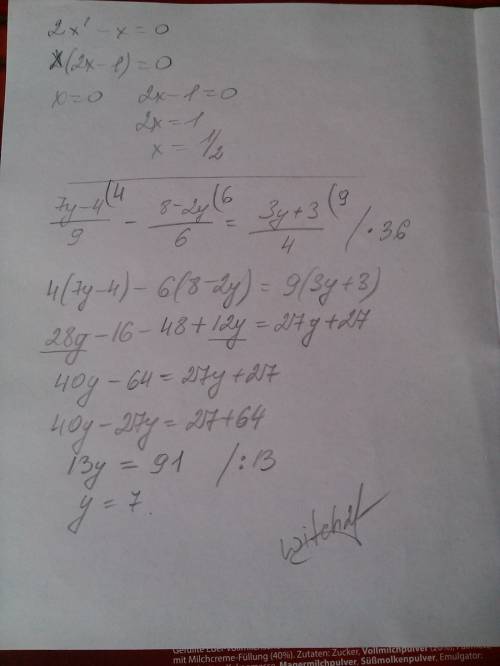 2x' - x = 0
x(2x-1) = 0
x = 0 2x-1 = 0
2x = 1
x = 1/2
(7y-4)/9 (4 - (8-2y)/6 (6 = (3y+3)/4 (9 /·36
4(7y-4) - 6(8-2y) = 9(3y+3)
28y - 16 - 48 + 12y = 27y + 27
40y - 64 = 27y + 27
40y - 27y = 27 + 64
13y = 91 /:13
y = 7.
mit Milchcreme-Füllung (40%). Zutaten: Zucker, Vollmilchpulver
Magermilchpulver, Süßmolkenpulver, Emulgator: